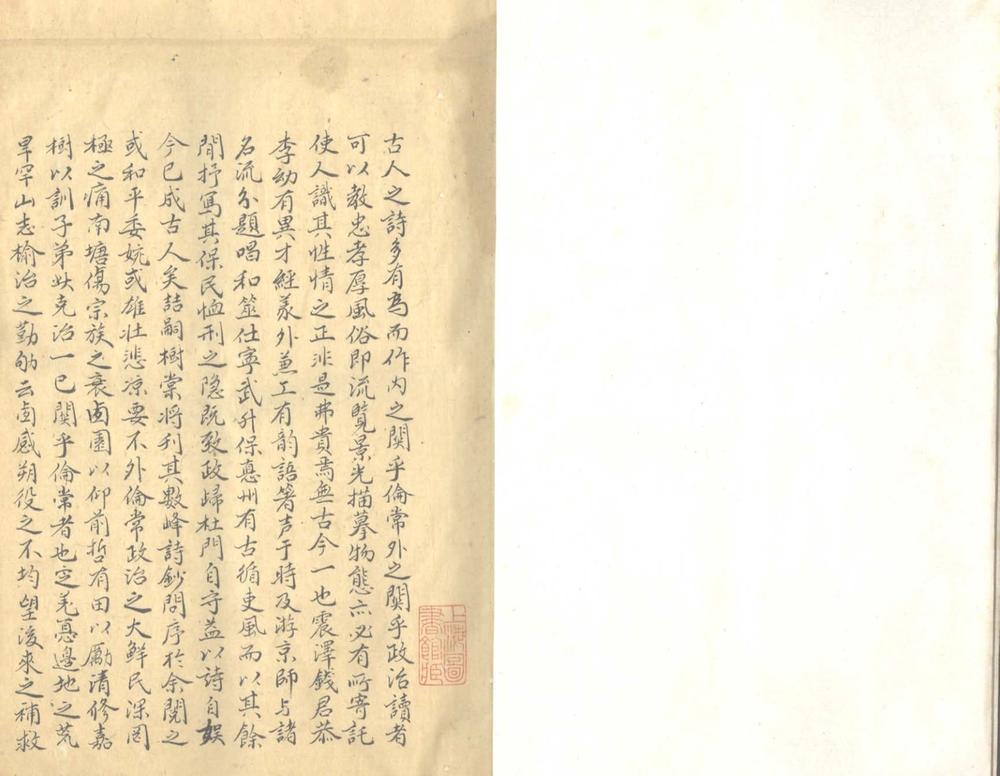 古人之詩多有為而作內之関乎倫常外之関乎政治讀者
可以教忠孝厚風俗即流覽景光描摹物態亦必有所寄託
使人識其性情之正非是弗貴焉無古今一也震澤錢君恭
李幼有異才經義外兼工有韵語箸声于時及游京師与諸
名流分題唱和筮仕寧武升保惪州有古循吏風而以其餘
閒抒寫其保民恤刑之隐既致政歸杜門自守益以詩自娱
今已成古人矣喆嗣樹棠将刋其數峰詩鈔問序於余閱之
或和平委婉或雄壮悲凉要不外倫常政治之大鮮民深罔
極之痛南塘傷宗族之衰凾園以仰前哲有田以勵清修嘉
樹以訓子弟此克治一己関乎倫常者也定羌憂邊地之荒
旱罕山志榆治之勤劬云凾感朔役之不均望後來之補救
上海圖書館藏